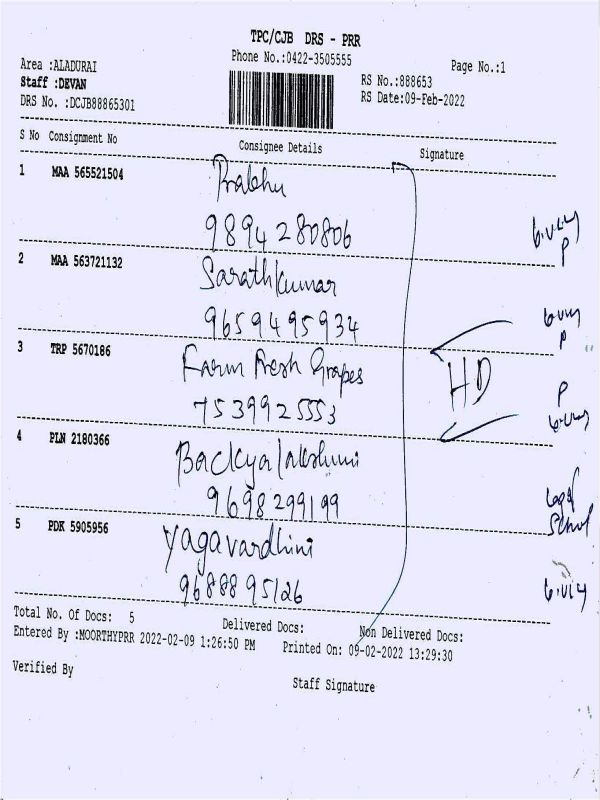 TPC/CJB DRS - PRR
Phone No.:0422-3505555
Page No.:1
Area :ALADURAI
Staff :DEVAN
DRS No. :DCJB88865301
RS No.:888653
RS Date:09-Feb-2022
S No Consignment No Consignee Details Signature
1 MAA 565521504 Prabhu
9894280806
P
2 MAA 563721132 Sarathkumar
9659495934
P
3 TRP 5670186 Farm Fresh Grapes
HD
P
7539925553
4 PLN 2180366 Backyalakshmi
9698299199
5 PDK 5905956 Yagavardhini
9688895126
Total No. Of Docs: 5 Delivered Docs: Non Delivered Docs:
Entered By :MOORTHYPRR 2022-02-09 1:26:50 PM Printed On: 09-02-2022 13:29:30
Verified By
Staff Signature